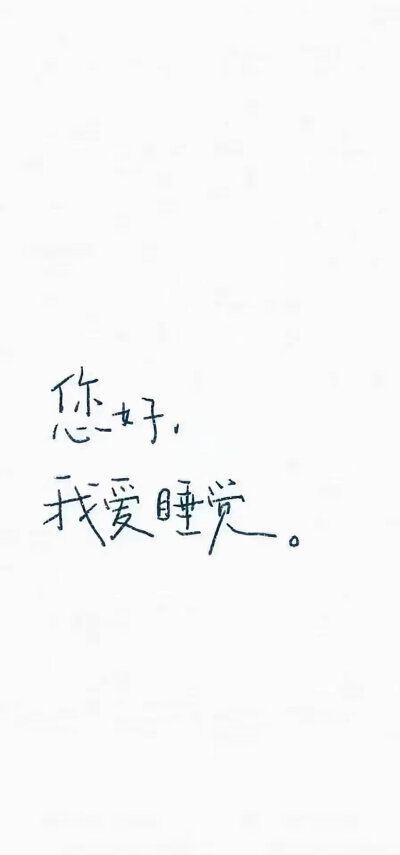 您好,
我爱睡觉。